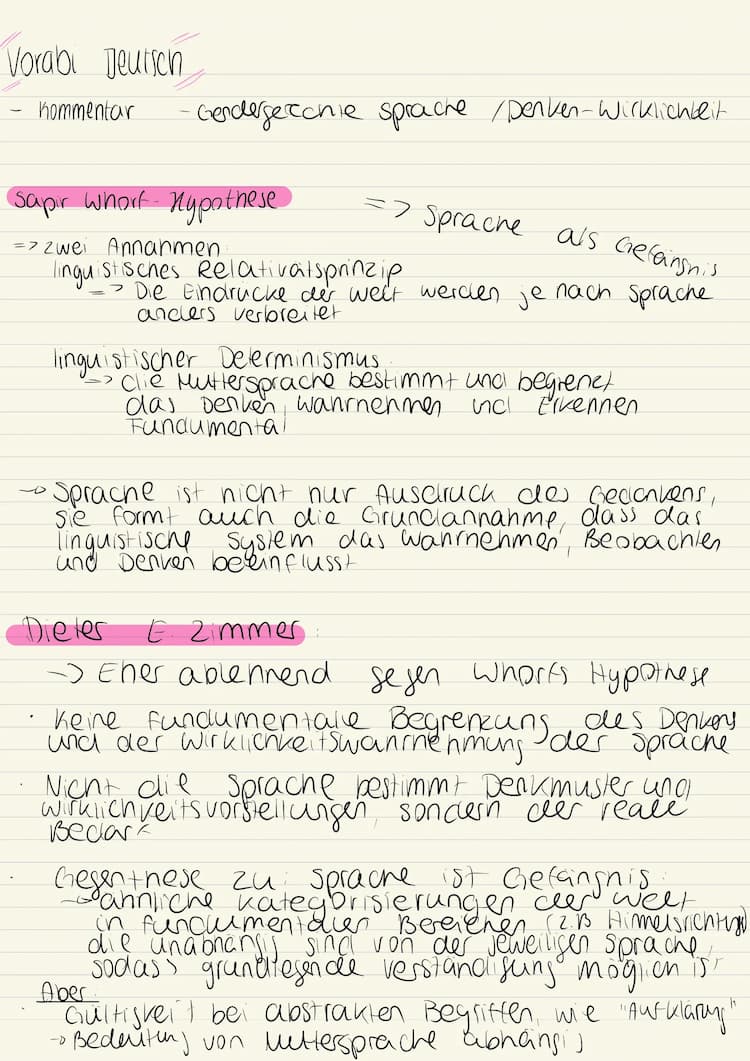 Vorabi Deutsch
- Kommentar - Gendergerechte Sprache / Denken-Wirklichkeit
Sapir Whorf-Hypothese
=> Sprache als Gefängnis
=> zwei Annahmen:
linguistisches Relativitätsprinzip
=> Die Eindrücke der Welt werden je nach Sprache
anders verbreitet
linguistischer Determinismus
=> die Muttersprache bestimmt und begrenzt
das Denken, Wahrnehmen und Erkennen
Fundumental
-> Sprache ist nicht nur Ausdruck des Gedankens,
sie formt auch die Grundannahme, dass das
linguistische System das Wahrnehmen, Beobachten
und Denken beeinflusst
Dieter E. Zimmer:
-> Eher ablehnend gegen Whorfs Hypothese
· Keine fundumentale Begrenzung des Denkens
und der Wirklichkeitswahrnehmung der Sprache
· Nicht die Sprache bestimmt Denkmuster und
Wirklichkeitsvorstellungen, sondern der reale
Bedarf
· Gegenthese zu: Sprache ist Gefängnis:
-> ähnliche Kategorisierungen der Welt
in fundumentalen Bereichen (z.B Himmelsrichtung)
die unabhängig sind von der jeweiligen Sprache,
sodass grundlegende Verständigung möglich ist
Aber:
Gültigkeit bei abstrakten Begriffen, wie "Aufklärung"
-> Bedeutung von Muttersprache abhängig